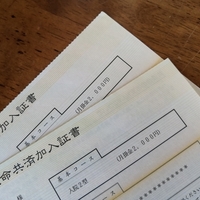 加入証書
基本コース
(月掛金2,000円)
命共済加入証書
基本コース
(月掛金2,000円)
入院2型
様